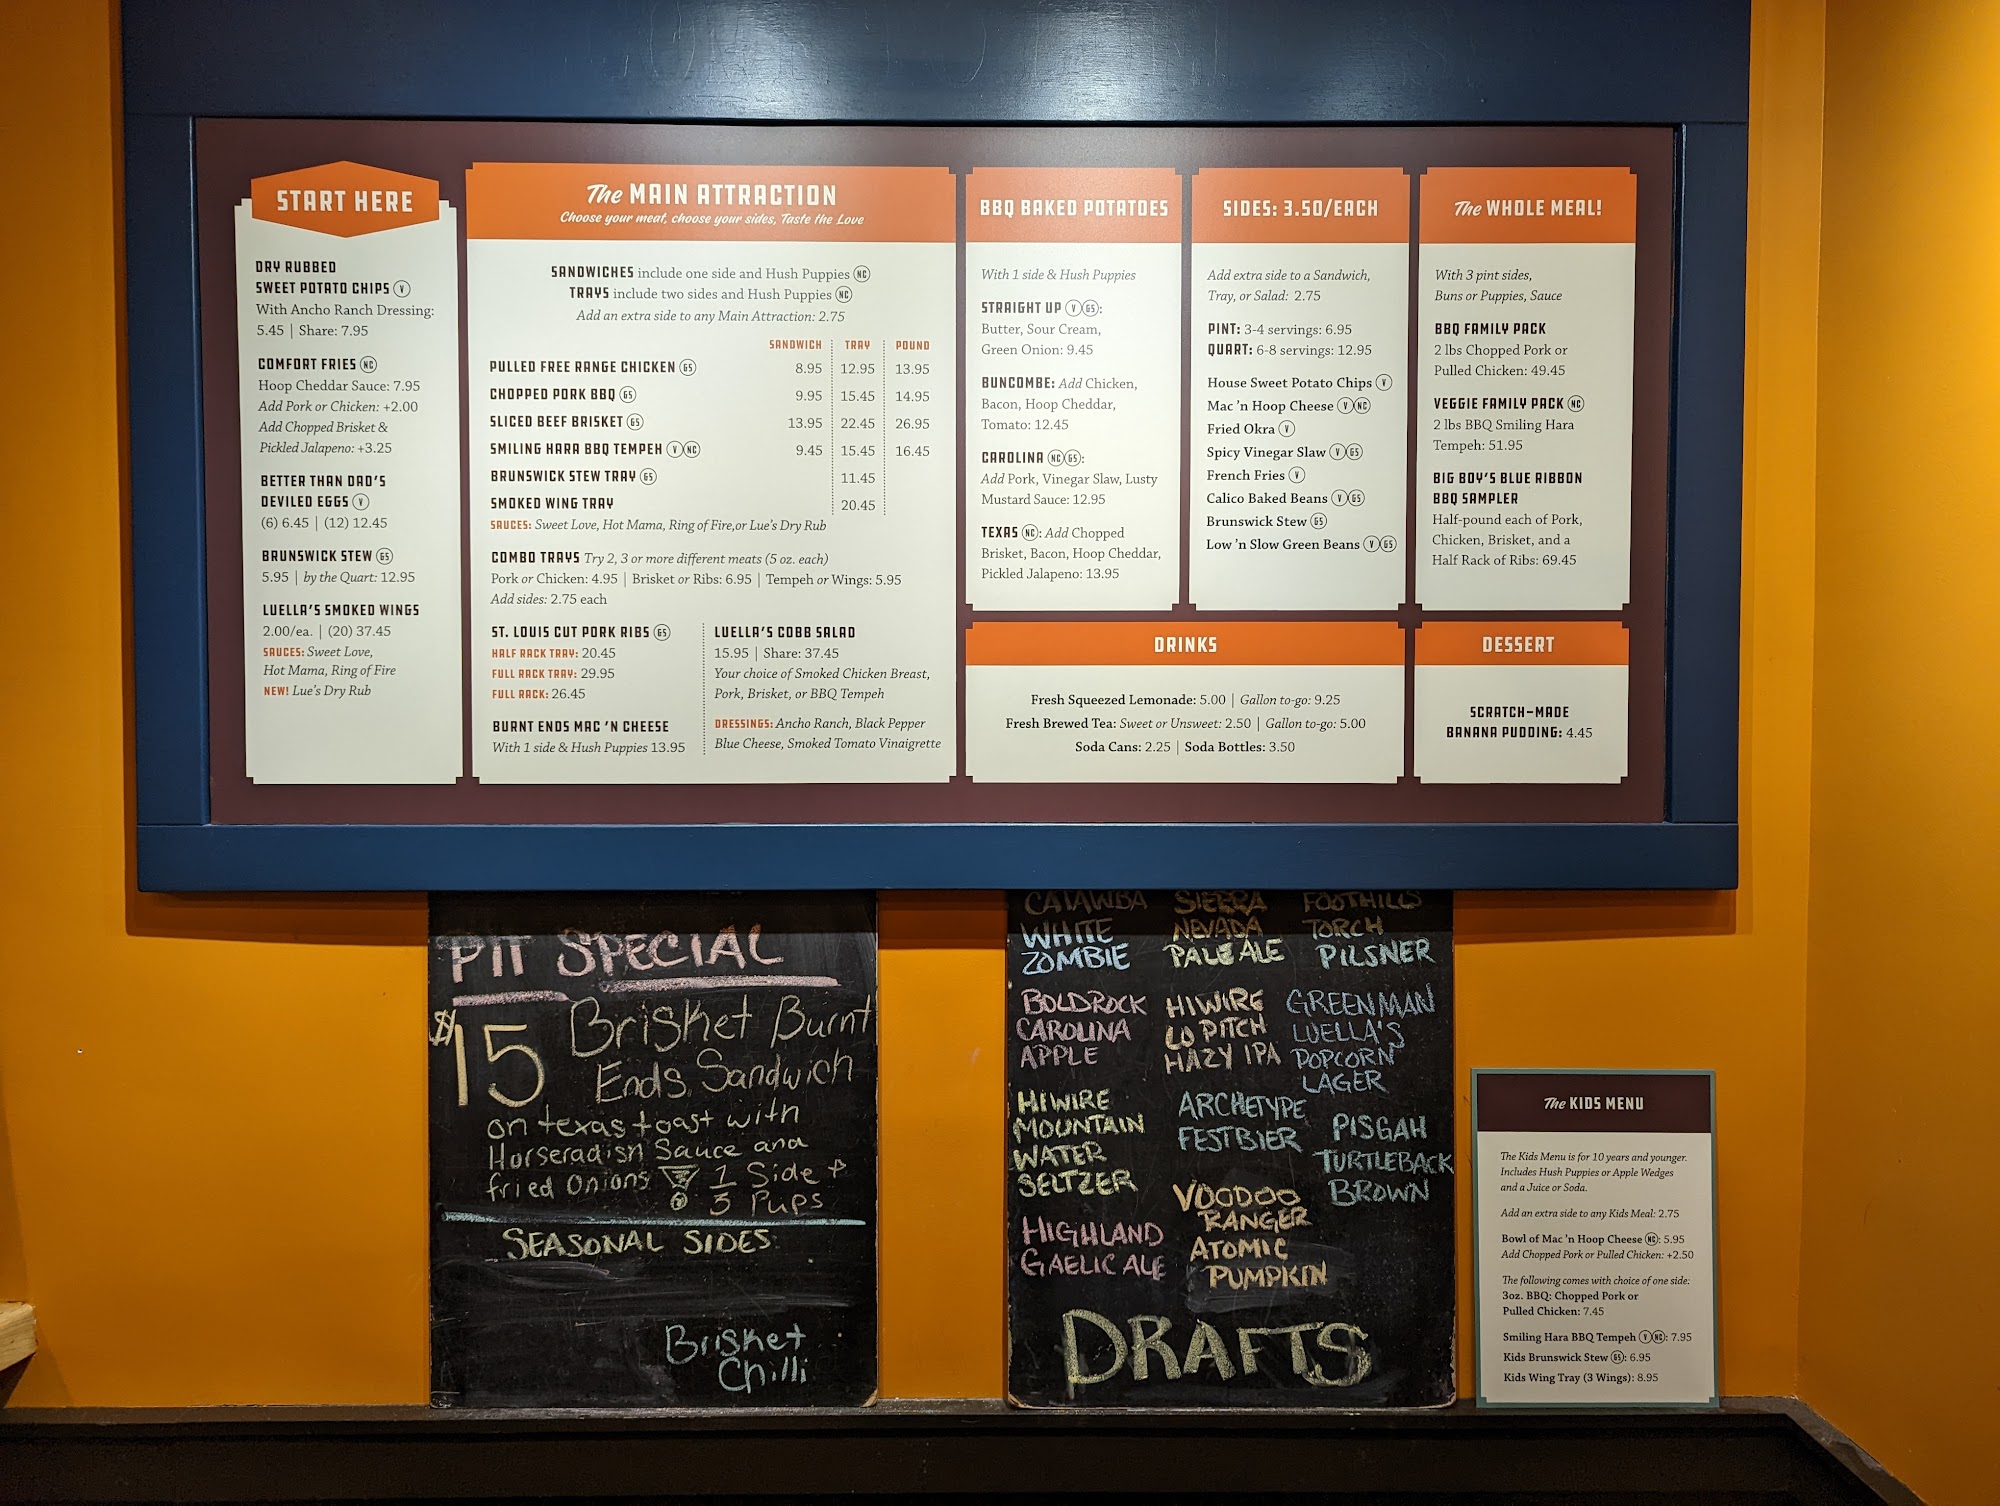 START HERE
DRY RUBBED
SWEET POTATO CHIPS V
With Ancho Ranch Dressing:
5.45 | Share: 7.95
COMFORT FRIES NC
Hoop Cheddar Sauce: 7.95
Add Pork or Chicken: +2.00
Add Chopped Brisket &
Pickled Jalapeno: +3.25
BETTER THAN DAD'S
DEVILED EGGS V
(6) 6.45 | (12) 12.45
BRUNSWICK STEW GS
5.95 | by the Quart: 12.95
LUELLA'S SMOKED WINGS
2.00/ea. | (20) 37.45
SAUCES: Sweet Love,
Hot Mama, Ring of Fire
NEW! Lue's Dry Rub
The MAIN ATTRACTION
Choose your meat, choose your sides, Taste the Love
SANDWICHES include one side and Hush Puppies NC
TRAYS include two sides and Hush Puppies NC
Add an extra side to any Main Attraction: 2.75
SANDWICH TRAY POUND
PULLED FREE RANGE CHICKEN GS 8.95 12.95 13.95
CHOPPED PORK BBQ GS 9.95 15.45 14.95
SLICED BEEF BRISKET GS 13.95 22.45 26.95
SMILING HARA BBQ TEMPEH V NC 9.45 15.45 16.45
BRUNSWICK STEW TRAY GS 11.45
SMOKED WING TRAY 20.45
SAUCES: Sweet Love, Hot Mama, Ring of Fire,or Lue's Dry Rub
COMBO TRAYS Try 2, 3 or more different meats (5 oz. each)
Pork or Chicken: 4.95 | Brisket or Ribs: 6.95 | Tempeh or Wings: 5.95
Add sides: 2.75 each
ST. LOUIS CUT PORK RIBS GS
HALF RACK TRAY: 20.45
FULL RACK TRAY: 29.95
FULL RACK: 26.45
BURNT ENDS MAC 'N CHEESE
With 1 side & Hush Puppies 13.95
LUELLA'S COBB SALAD
15.95 | Share: 37.45
Your choice of Smoked Chicken Breast,
Pork, Brisket, or BBQ Tempeh
DRESSINGS: Ancho Ranch, Black Pepper
Blue Cheese, Smoked Tomato Vinaigrette
BBQ BAKED POTATOES
With 1 side & Hush Puppies
STRAIGHT UP V GS:
Butter, Sour Cream,
Green Onion: 9.45
BUNCOMBE: Add Chicken,
Bacon, Hoop Cheddar,
Tomato: 12.45
CAROLINA NC GS:
Add Pork, Vinegar Slaw, Lusty
Mustard Sauce: 12.95
TEXAS NC: Add Chopped
Brisket, Bacon, Hoop Cheddar,
Pickled Jalapeno: 13.95
SIDES: 3.50/EACH
Add extra side to a Sandwich,
Tray, or Salad: 2.75
PINT: 3-4 servings: 6.95
QUART: 6-8 servings: 12.95
House Sweet Potato Chips V
Mac 'n Hoop Cheese V NC
Fried Okra V
Spicy Vinegar Slaw V GS
French Fries V
Calico Baked Beans V GS
Brunswick Stew GS
Low 'n Slow Green Beans V GS
The WHOLE MEAL!
With 3 pint sides,
Buns or Puppies, Sauce
BBQ FAMILY PACK
2 lbs Chopped Pork or
Pulled Chicken: 49.45
VEGGIE FAMILY PACK NC
2 lbs BBQ Smiling Hara
Tempeh: 51.95
BIG BOY'S BLUE RIBBON
BBQ SAMPLER
Half-pound each of Pork,
Chicken, Brisket, and a
Half Rack of Ribs: 69.45
DRINKS
Fresh Squeezed Lemonade: 5.00 | Gallon to-go: 9.25
Fresh Brewed Tea: Sweet or Unsweet: 2.50 | Gallon to-go: 5.00
Soda Cans: 2.25 | Soda Bottles: 3.50
DESSERT
SCRATCH-MADE
BANANA PUDDING: 4.45
PIT SPECIAL
$15 Brisket Burnt
Ends Sandwich
on texas toast with
Horseradish Sauce and
fried onions
1 Side +
3 Pups
SEASONAL SIDES
Brisket
Chilli
CATAWBA
WHITE
ZOMBIE
BOLDROCK
CAROLINA
APPLE
HIWIRE
MOUNTAIN
WATER
SELTZER
HIGHLAND
GAELIC ALE
SIERRA
NEVADA
PALE ALE
HIWIRE
LO PITCH
HAZY IPA
ARCHETYPE
FESTBIER
VOODOO
RANGER
ATOMIC
PUMPKIN
FOOTHILLS
TORCH
PILSNER
GREENMAN
LUELLA'S
POPCORN
LAGER
PISGAH
TURTLEBACK
BROWN
DRAFTS
The KIDS MENU
The Kids Menu is for 10 years and younger.
Includes Hush Puppies or Apple Wedges
and a Juice or Soda.
Add an extra side to any Kids Meal: 2.75
Bowl of Mac 'n Hoop Cheese NC: 5.95
Add Chopped Pork or Pulled Chicken: +2.50
The following comes with choice of one side:
3oz. BBQ: Chopped Pork or
Pulled Chicken: 7.45
Smiling Hara BBQ Tempeh V NC: 7.95
Kids Brunswick Stew GS: 6.95
Kids Wing Tray (3 Wings): 8.95